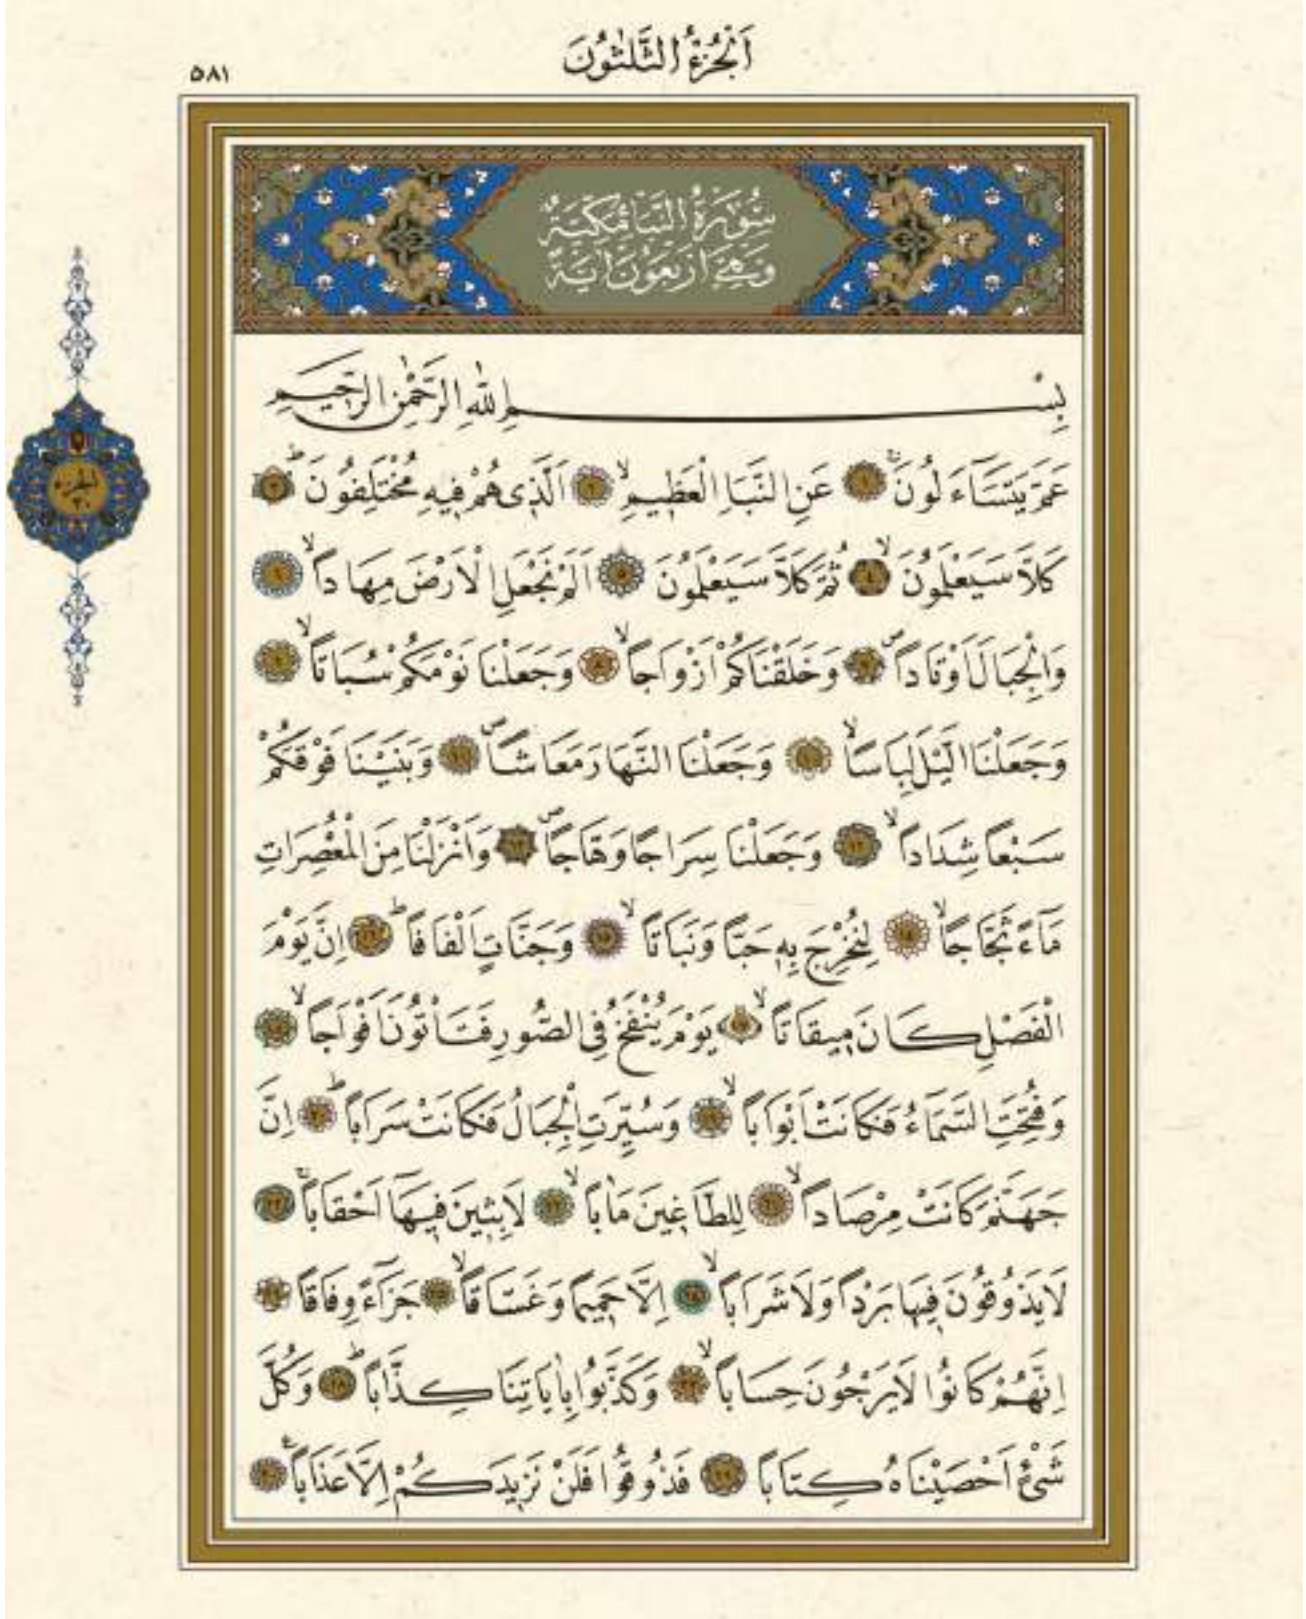 اَلْجُزْءُ الثَّلٰثُونَ
٥٨١
سُورَةُ النَّبَأِ مَكِّيَّةٌ
وَهِيَ اَرْبَعُونَ اٰيَةً
بِسْمِ اللّٰهِ الرَّحْمٰنِ الرَّحِيمِ
عَمَّ يَتَسَٓاءَلُونَۚ ١ عَنِ النَّبَأِ الْعَظِيمِۙ ٢ اَلَّذِى هُمْ فِيهِ مُخْتَلِفُونَۜ ٣
كَلَّا سَيَعْلَمُونَۙ ٤ ثُمَّ كَلَّا سَيَعْلَمُونَ ٥ اَلَمْ نَجْعَلِ الْاَرْضَ مِهَاداًۙ ٦
وَالْجِبَالَ اَوْتَاداًۖ ٧ وَخَلَقْنَاكُمْ اَزْوَاجاًۙ ٨ وَجَعَلْنَا نَوْمَكُمْ سُبَاتاًۙ ٩
وَجَعَلْنَا الَّيْلَ لِبَاساًۙ ١٠ وَجَعَلْنَا النَّهَارَ مَعَاشاًۖ ١١ وَبَنَيْنَا فَوْقَكُمْ
سَبْعاً شِدَاداًۙ ١٢ وَجَعَلْنَا سِرَاجًا وَهَّاجاًۖ ١٣ وَاَنْزَلْنَا مِنَ الْمُعْصِرَاتِ
مَٓاءً ثَجَّاجاًۙ ١٤ لِنُخْرِجَ بِهِ حَبًّا وَنَبَاتاًۙ ١٥ وَجَنَّاتٍ اَلْفَافاًۜ ١٦ اِنَّ يَوْمَ
الْفَصْلِ كَانَ مِيقَاتاًۙ ١٧ يَوْمَ يُنْفَخُ فِى الصُّورِ فَتَأْتُونَ اَفْوَاجاًۙ ١٨
وَفُتِحَتِ السَّمَٓاءُ فَكَانَتْ اَبْوَاباًۙ ١٩ وَسُيِّرَتِ الْجِبَالُ فَكَانَتْ سَرَاباًۜ ٢٠ اِنَّ
جَهَنَّمَ كَانَتْ مِرْصَاداًۙ ٢١ لِلطَّاغِينَ مَاٰباًۙ ٢٢ لَابِثِينَ فِيهَٓا اَحْقَاباًۚ ٢٣
لَا يَذُوقُونَ فِيهَا بَرْداً وَلَا شَرَاباًۙ ٢٤ اِلَّا حَمِيماً وَغَسَّاقاًۙ ٢٥ جَزَٓاءً وِفَاقاً ٢٦
اِنَّهُمْ كَانُوا لَا يَرْجُونَ حِسَاباًۙ ٢٧ وَكَذَّبُوا بِاٰيَاتِنَا كِذَّاباًۜ ٢٨ وَكُلَّ
شَىْءٍ اَحْصَيْنَاهُ كِتَاباً ٢٩ فَذُوقُوا فَلَنْ نَزِيدَكُمْ اِلَّا عَذَاباً ٣٠
الجزء
٣٠